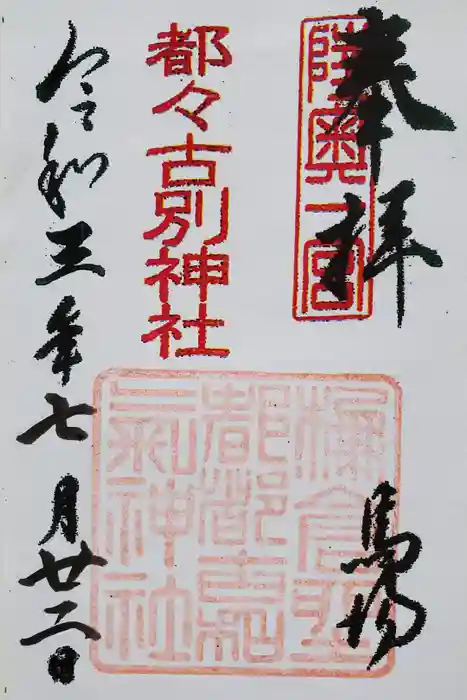 奉拝
陸奥一宮
馬場
都々古別神社
棚倉坐
都都古和
氣神社
令和三年七月廿二日